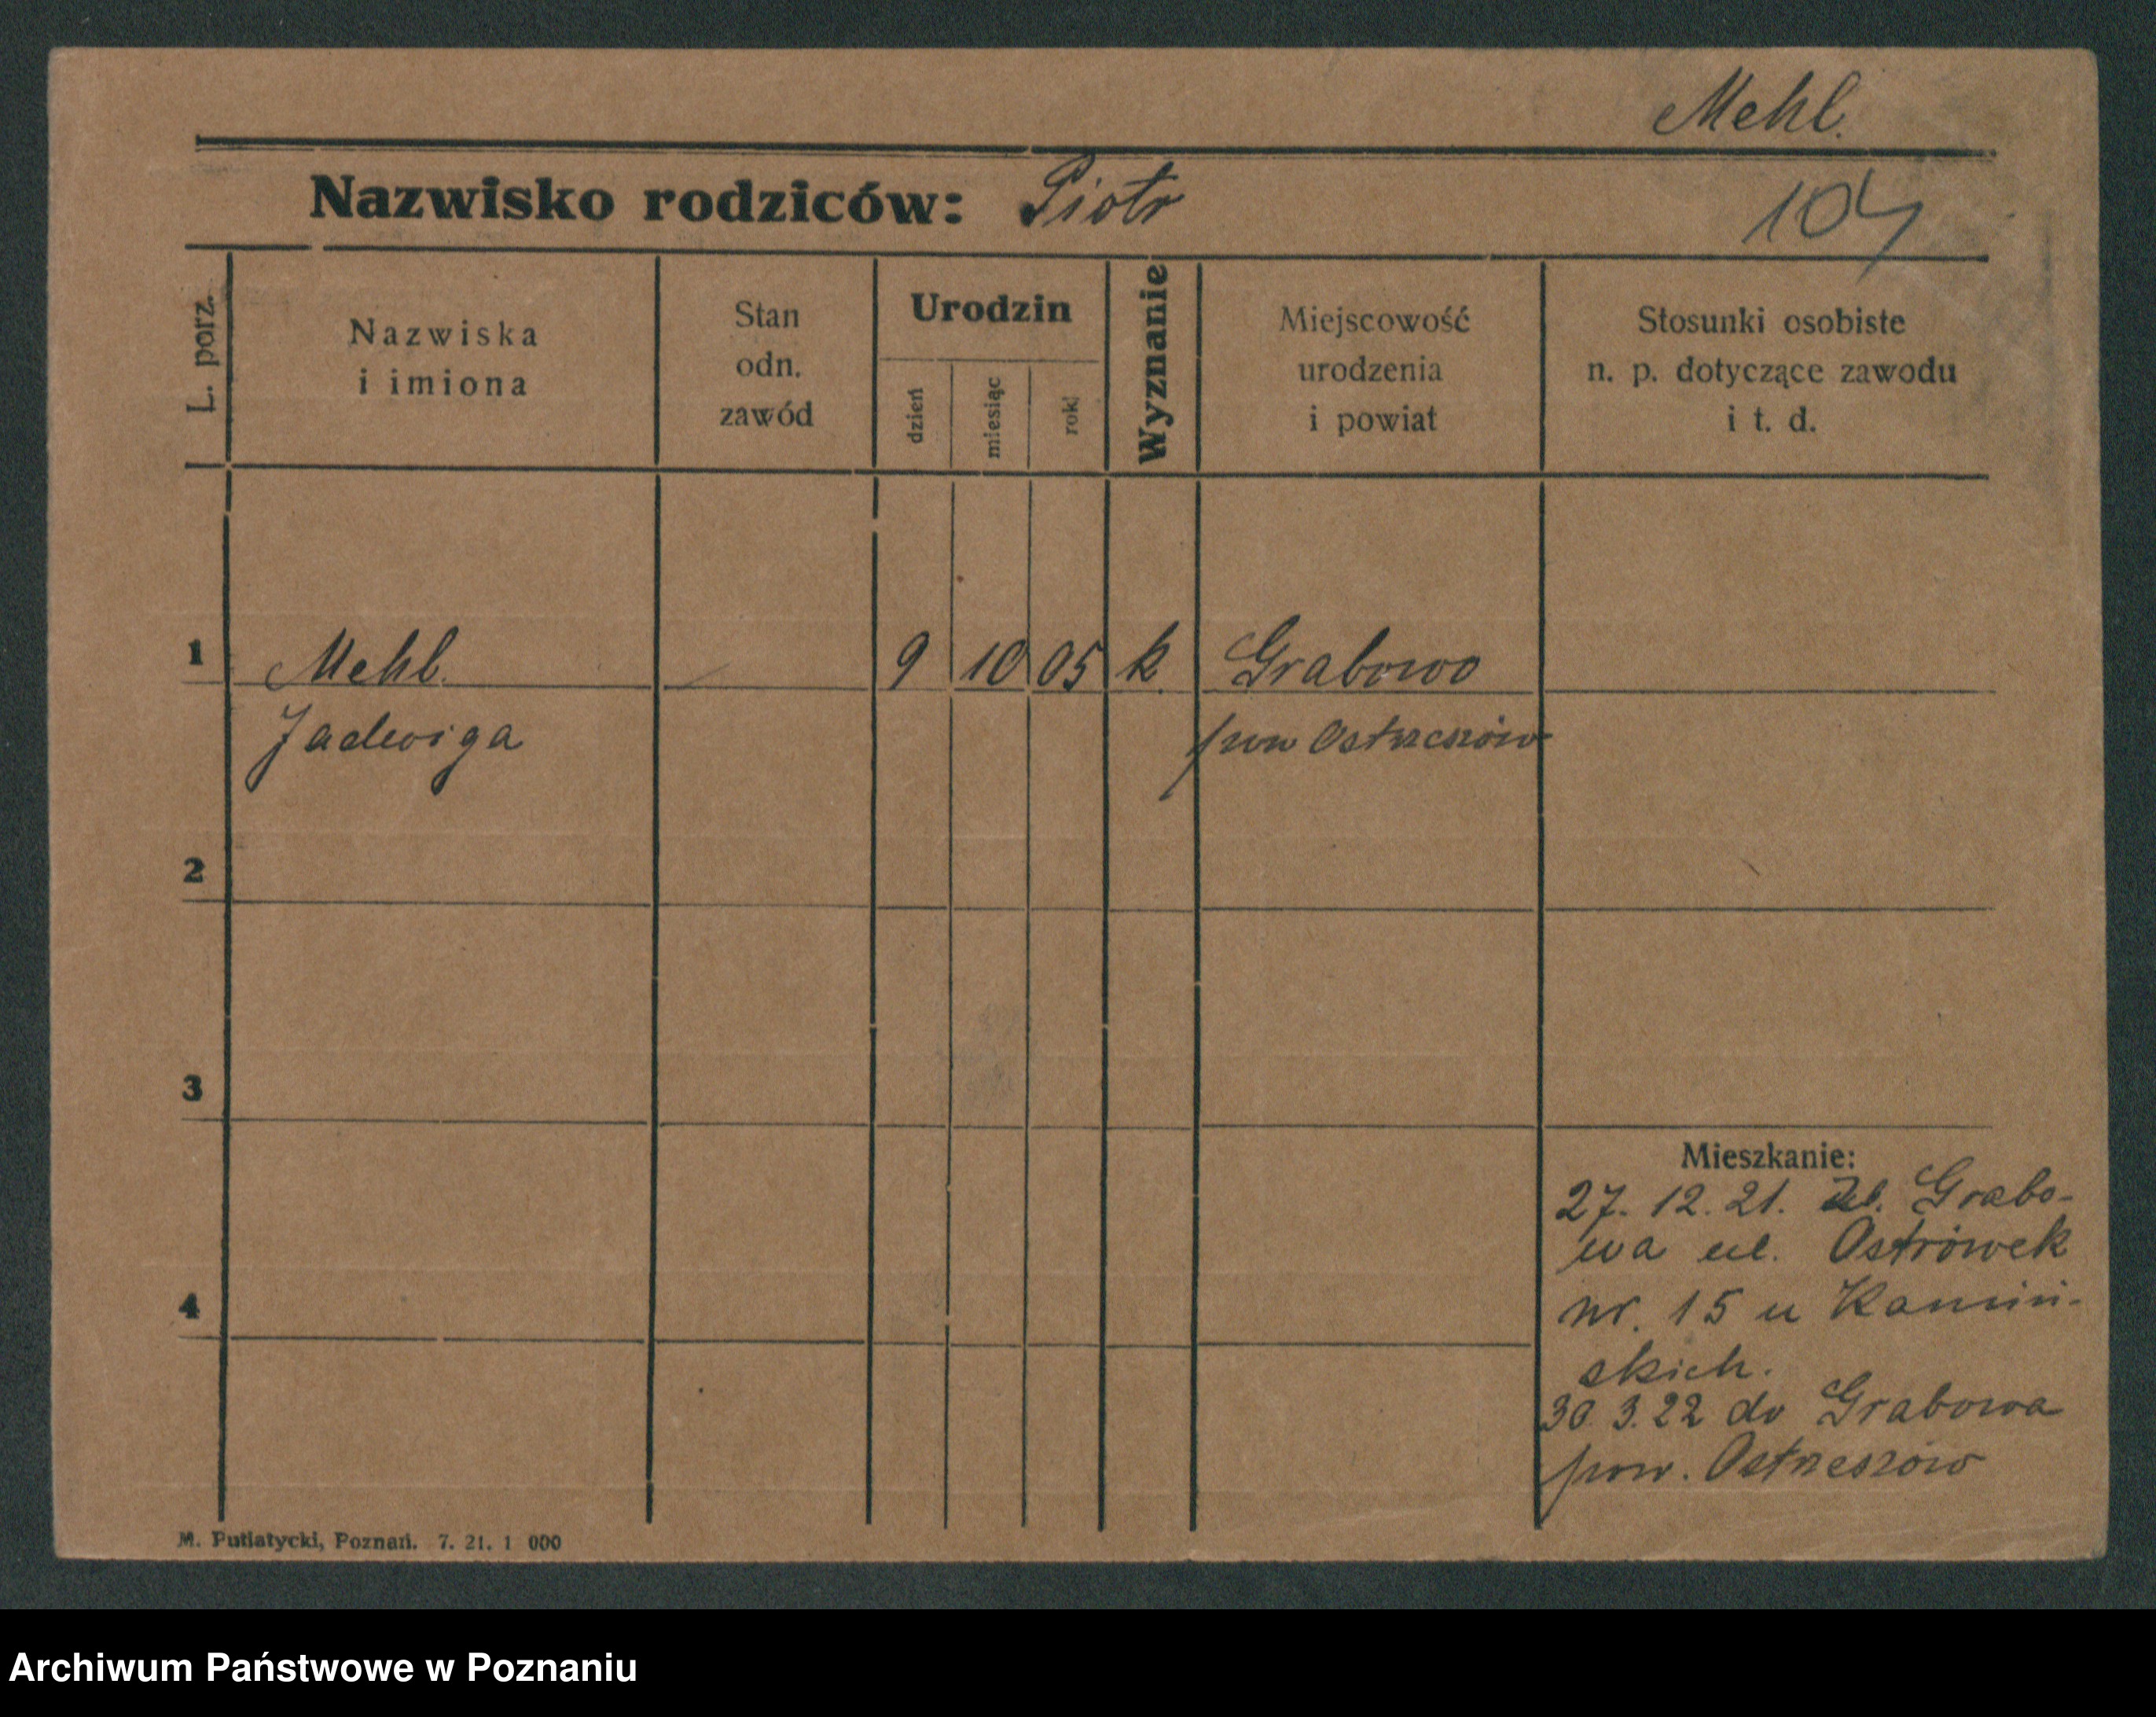 Mehl.
Nazwisko rodziców: Piotr
104
L. porz.
Nazwiska
i imiona
Stan
odn.
zawód
Urodzin
dzień
miesiąc
rok
Wyznanie
Miejscowość
urodzenia
i powiat
Stosunki osobiste
n. p. dotyczące zawodu
i t. d.
1 Mehl. 9 10 05 k. Grabowo
Jadwiga pow Ostrzeszów
2
3
4
Mieszkanie:
27. 12. 21. Grabo-
wa ul. Ostrówek
nr. 15 u Kamiń-
skich.
30. 3. 22 do Grabowa
pow. Ostrzeszów
M. Putiatycki, Poznań. 7. 21. 1 000
Archiwum Państwowe w Poznaniu